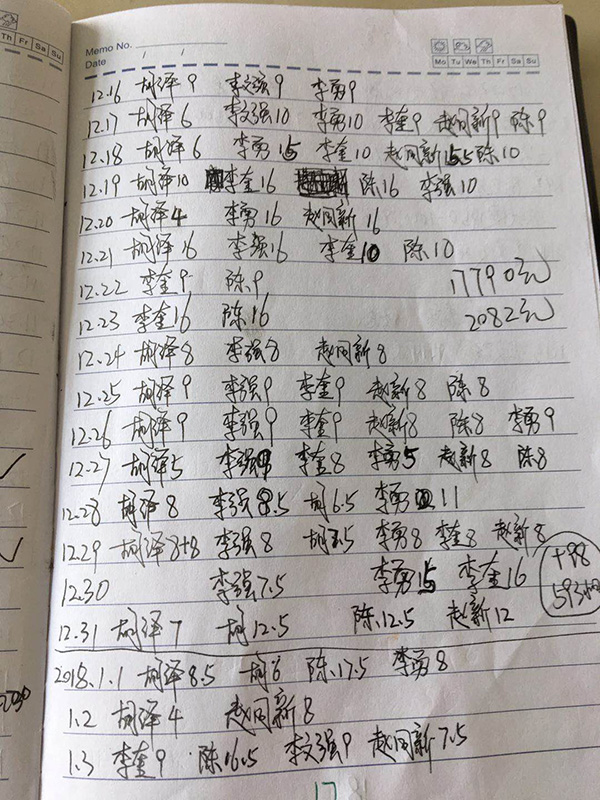 Th Fr Sa Su
Memo No.
Date / /
Mo Tu We Th Fr Sa Su
12.16 胡泽9 李文强9 李勇9
12.17 胡泽6 李文强10 李勇10 李奎9 赵同新9 陈9
12.18 胡泽6 李勇15 李奎10 赵同新15.5 陈10
12.19 胡泽10 李奎16 陈16 李强10
12.20 胡泽4 李勇16 赵同新16
12.21 胡泽16 李强16 李奎10 陈10
12.22 李奎9 陈9
17790元
12.23 李奎16 陈16
2082元
12.24 胡泽8 李强8 赵同新8
12.25 胡泽9 李强9 李奎9 赵新8 陈8
12.26 胡泽9 李强9 李奎9 赵新8 陈8 李勇9
12.27 胡泽5 李强 李奎8 李勇5 赵新8 陈8
12.28 胡泽8 李强8.5 胡6.5 李勇11
12.29 胡泽8+8 李强8 胡 李勇8 李奎8 赵新8
12.30 李强7.5 李勇15 李奎16
12.31 胡泽7 胡12.5 陈.12.5 赵新12
2018.1.1 胡泽8.5 胡 陈.17.5 李勇8
1.2 胡泽4 赵同新8
1.3 李奎9 陈16.5 李文强9 赵同新7.5